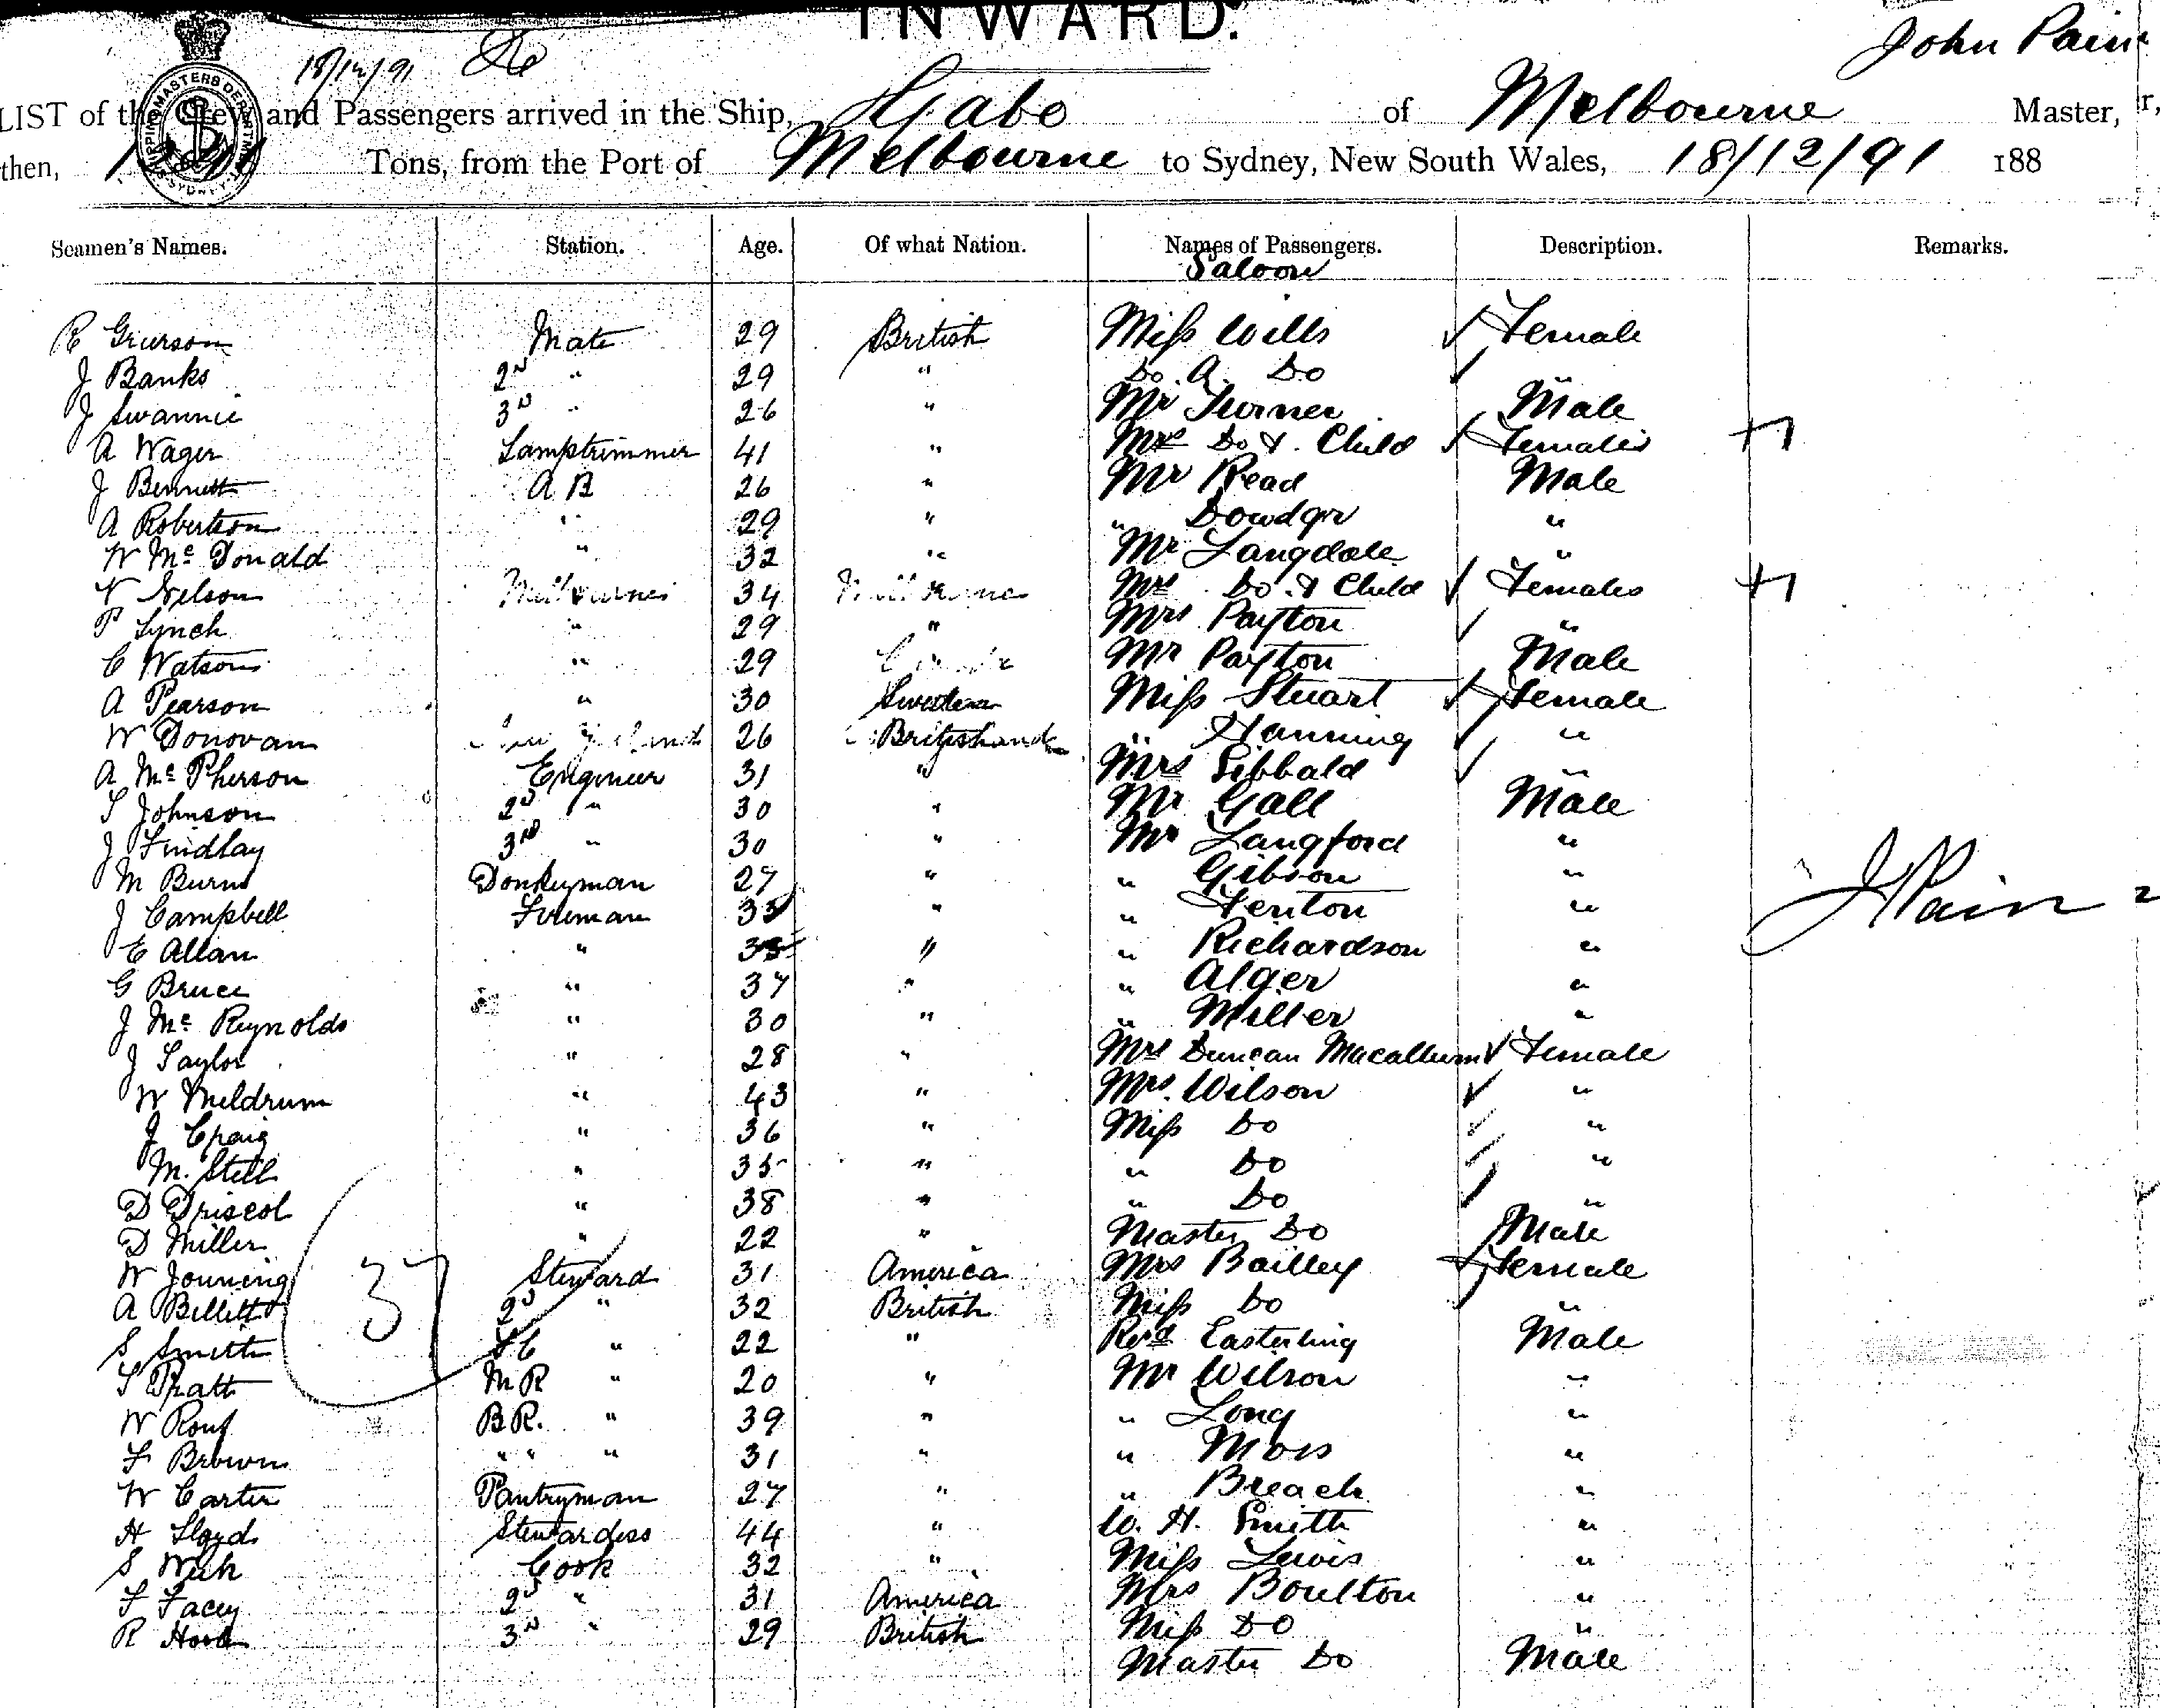 INWARD.
John Pain
18/12/91
LIST of the Crew and Passengers arrived in the Ship, Gabo of Melbourne Master,
then, Tons, from the Port of Melbourne to Sydney, New South Wales, 18/12/91 188
SHIPPING MASTERS DEPARTMENT SYDNEY
Seamen's Names. Station. Age. Of what Nation. Names of Passengers. Description. Remarks.
Saloon
R Grierson Mate 29 British Miss Wills Female
J Banks 2nd " 29 " Do. A. Do "
J Swannie 3rd " 26 " Mr Turner Male
A Wager Lamptrimmer 41 " Mrs Do & Child Females
J Bennett A B 26 " Mr Read Male
A Robertson " 29 " " "
W Mc Donald " 32 " Mr Langdale "
N Nelson 34 Mrs Do & Child Females
P Lynch " 29 " Mrs Payton "
C Watson " 29 Mr Payton Male
A Pearson " 30 Sweden Miss Stuart Female
W Donovan 26 British " Hanning "
A Mc Pherson Engineer 31 " Mrs Sibbald "
T Johnson 2nd " 30 " Mr Gall Male
J Findlay 3rd " 30 " Mr Langford "
M Burns Donkeyman 27 " " Gibson "
J Campbell Fireman 35 " " Fenton "
E Allan " 35 " " Richardson "
G Bruce " 37 " " Alger "
J Mc Reynolds " 30 " " Miller "
J Taylor " 28 " Mrs Duncan Macallum Female
W Meldrum " 43 " Mrs. Wilson "
J Craig " 36 " Miss Do "
M. Stell " 35 " " Do "
D Driscol " 38 " " Do "
D Miller " 22 " Master Do Male
W Jouning Steward 31 America Mrs Bailley Female
A Billett 2nd " 32 British Miss Do "
S Smith " 22 " Revd Easterling Male
T Pratt M R " 20 " Mr Wilson "
W B R. " 39 " " Long "
F Brown " " " 31 " " Moss "
W Carter Pantryman 27 " " Breach "
H Lloyd Stewardess 44 " W. H. Smith "
S Cook 32 " Miss Lewis "
F Facey 2nd " 31 America Mrs Boulton "
R 3rd " 29 British Miss Do "
Master Do Male
37
J Pain